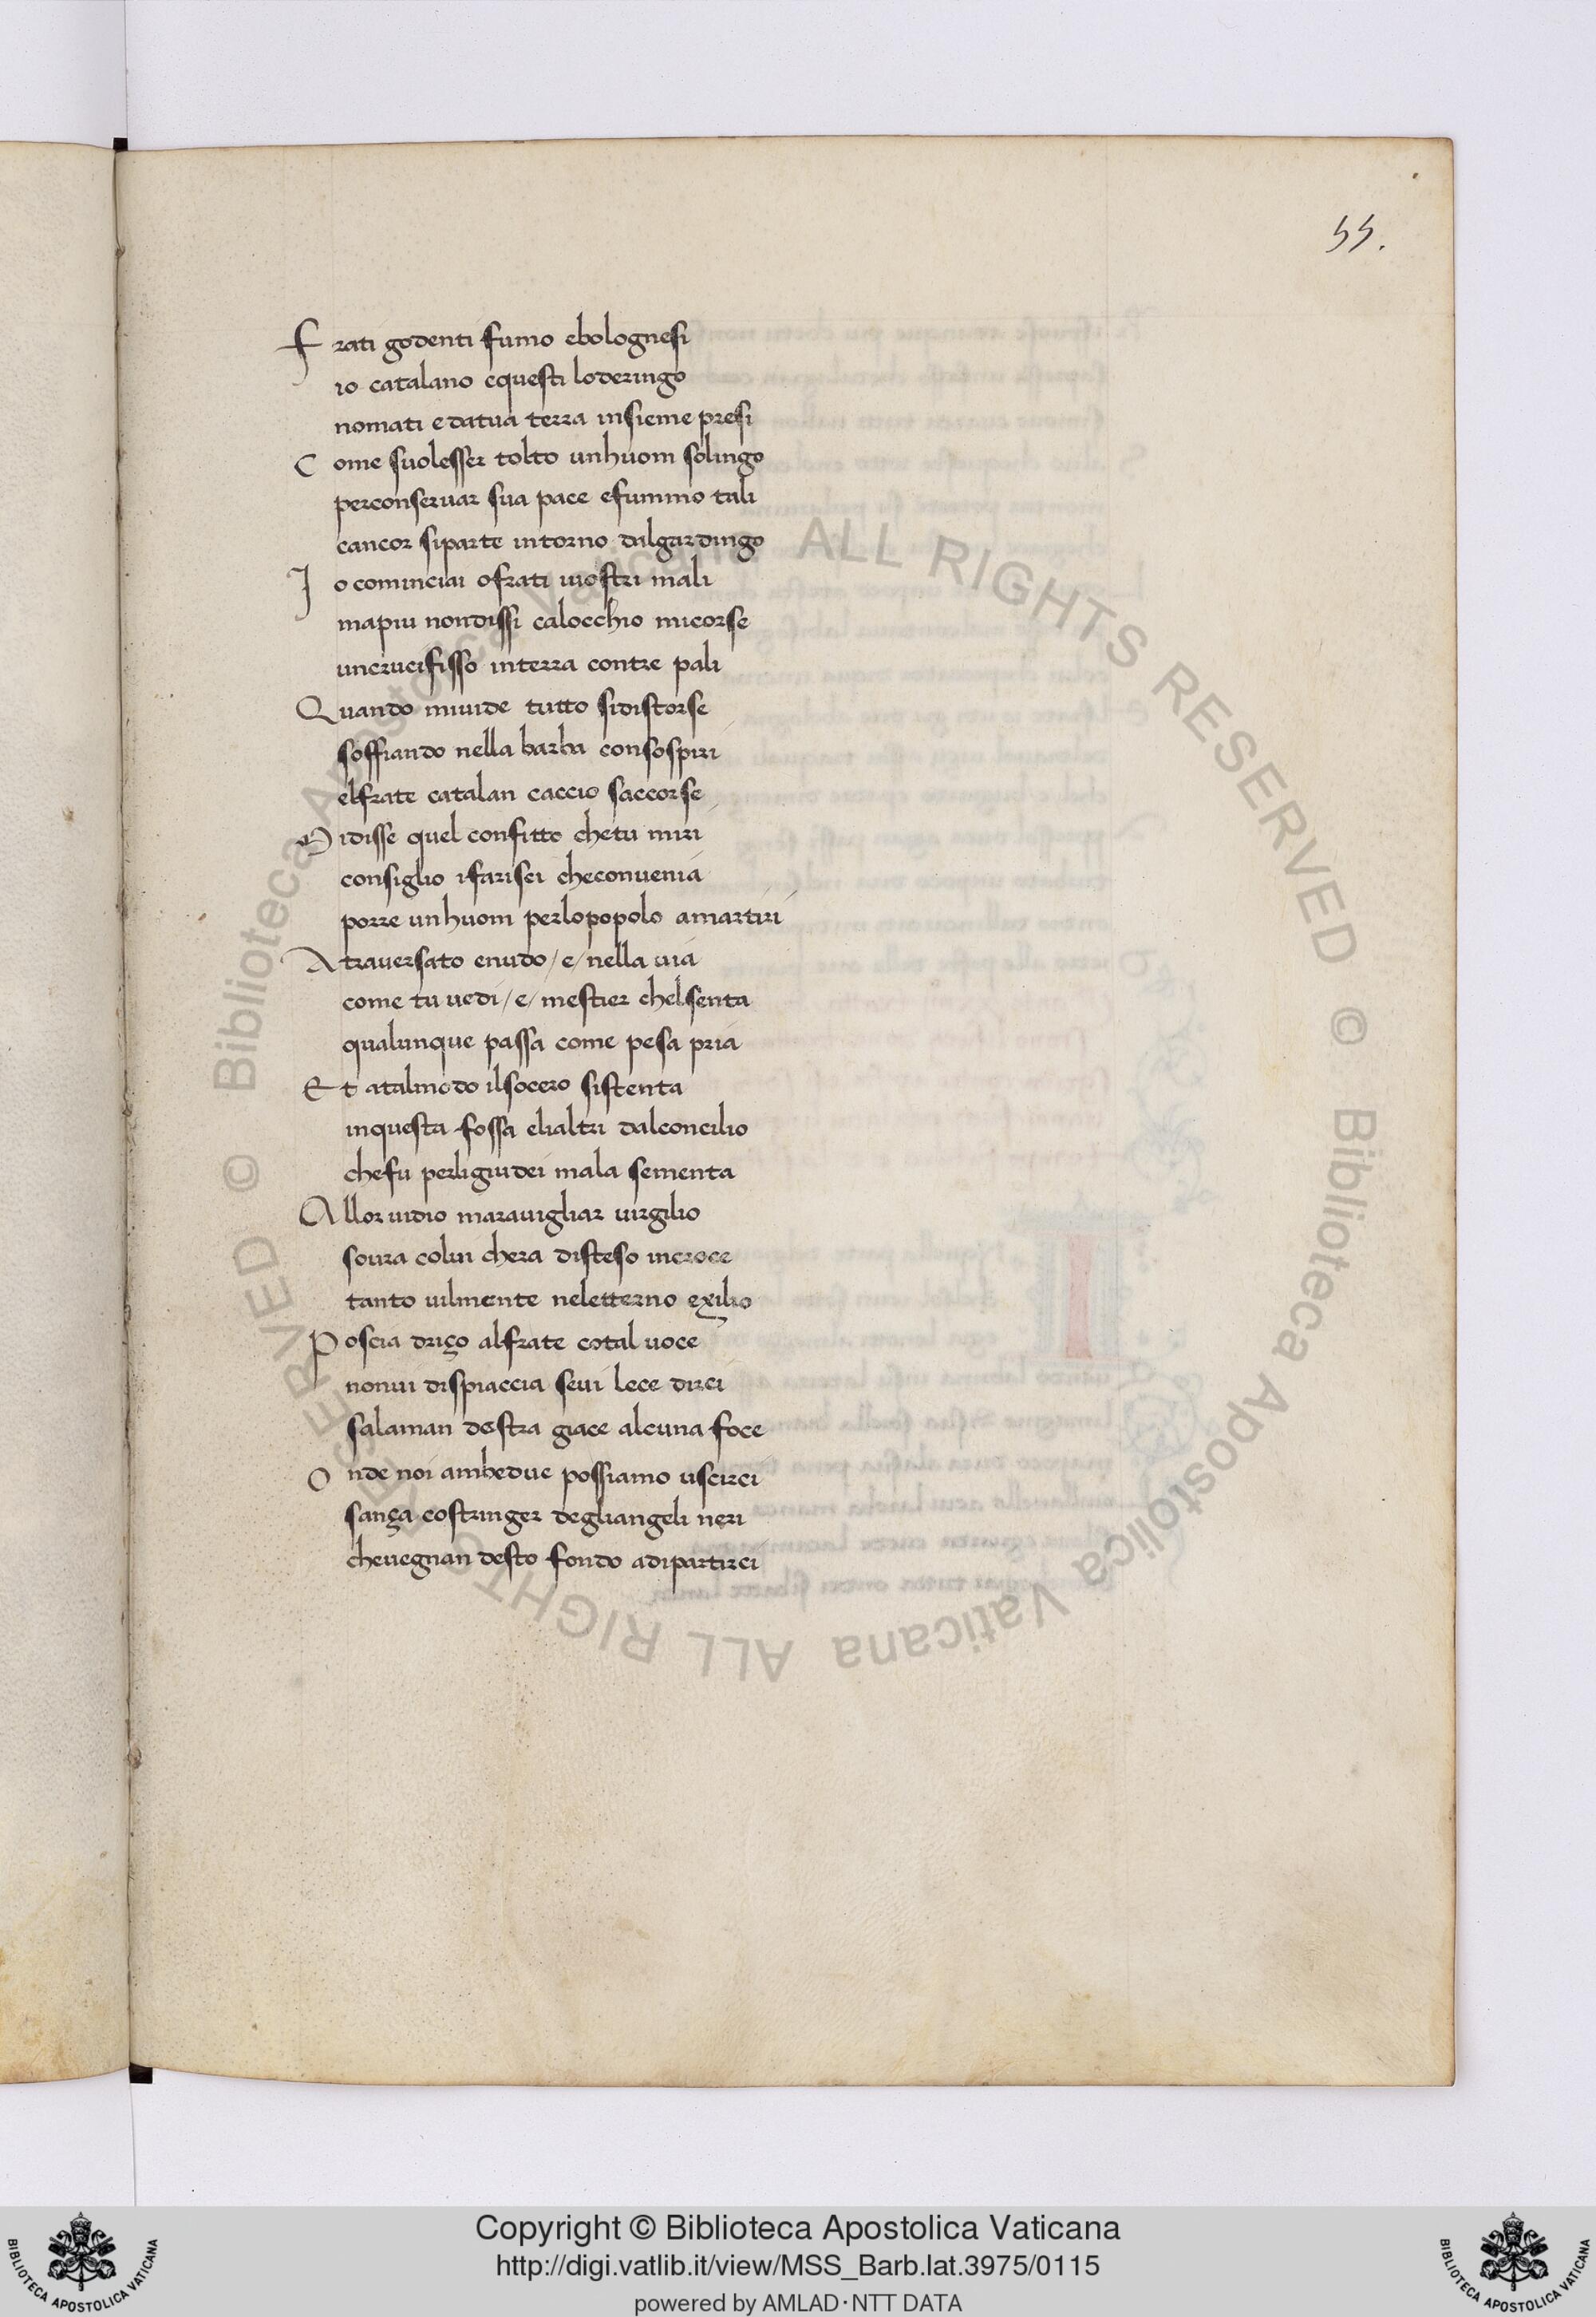 55.
Frati godenti fumo ebolognesi
io catalano equesti loderingo
nomati edatua terra insieme presi
Come suolesser tolto unhuom solingo
perconseruar sua pace efummo tali
cancor siparte intorno dalgardingo
Io cominciai ofrati iuostri mali
mapiu nondissi calocchio micorse
uncrucifisso interra contre pali
Quando miuide tutto sidistorse
soffiando nella barba consospiri
elfrate catalan caccio saccorse
Midisse quel confitto chetu miri
consiglio ifarisei checonuenia
porre unhuom perlopopolo amartiri
Atrauersato enudo/e/nella uia
come tu uedi/e/mestier chelsenta
qualunque passa come pesa pria
Et atalmodo ilsocero sistenta
inquesta fossa elialtri dalconcilio
chefu perligiudei mala sementa
Allor uidio marauigliar uirgilio
soura colui chera disteso incroce
tanto uilmente neletterno exilio
Poscia driço alfrate cotal uoce
nonui dispiaccia seui lece dirci
salaman destra giace alcuna foce
Onde noi ambedue possiamo uscirci
sança costringer degliangeli neri
cheuegnan desto fondo adipartirci
© Biblioteca Apostolica Vaticana ALL RIGHTS RESERVED © Biblioteca Apostolica Vaticana ALL RIGHTS RESERVED
Copyright © Biblioteca Apostolica Vaticana
http://digi.vatlib.it/view/MSS_Barb.lat.3975/0115
powered by AMLAD·NTT DATA
BIBLIOTECA APOSTOLICA VATICANA
BIBLIOTECA APOSTOLICA VATICANA